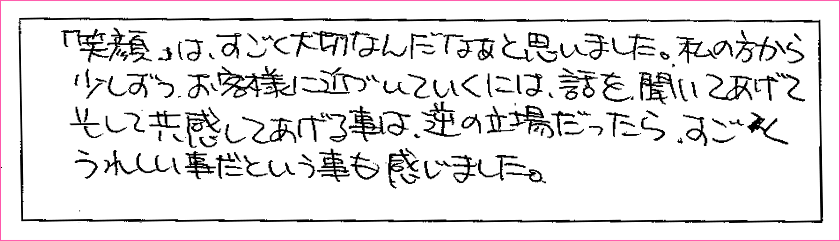 「笑顔」は、すごく大切なんだなぁと思いました。私の方から
少しずつ、お客様に近づいていくには、話を、聞いてあげて
そして共感してあげる事は、逆の立場だったら、すごく
うれしい事だという事も感じました。